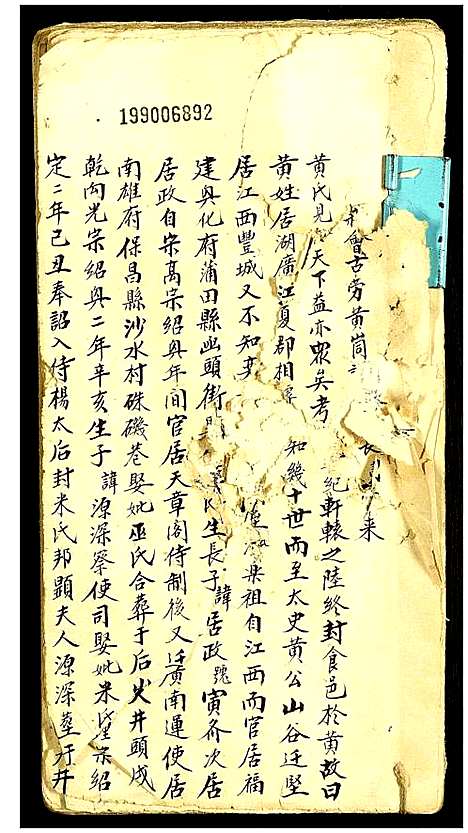 199006892
會古勞黃岡
來
黃氏見 天下益亦眾矣考 紀軒轅之陸終封食邑於黃故曰
黃姓居湖廣江夏郡相 和幾十世而至太史黃公山谷迁堅
居江西豐城又不知 樂祖自江西而官居福
建興化府莆田縣 頭街 生長子諱居政 號寅 次居
居政自宋高宗紹興年间官居天章阁侍制後又迁廣南運使居
南雄府保昌縣沙水村硃磯巷娶妣巫氏合葬于后 井頭戌
乾向光宗紹興二年辛亥生子諱源深察使司娶妣米氏 宗紹
定二年己丑奉詔入侍楊太后封米氏邦顯夫人源深葬 井